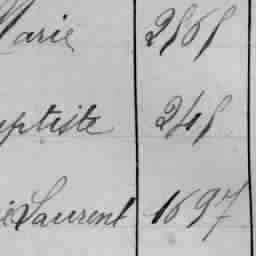 Marie 2565
ptiste 245
ie Laurent 1697